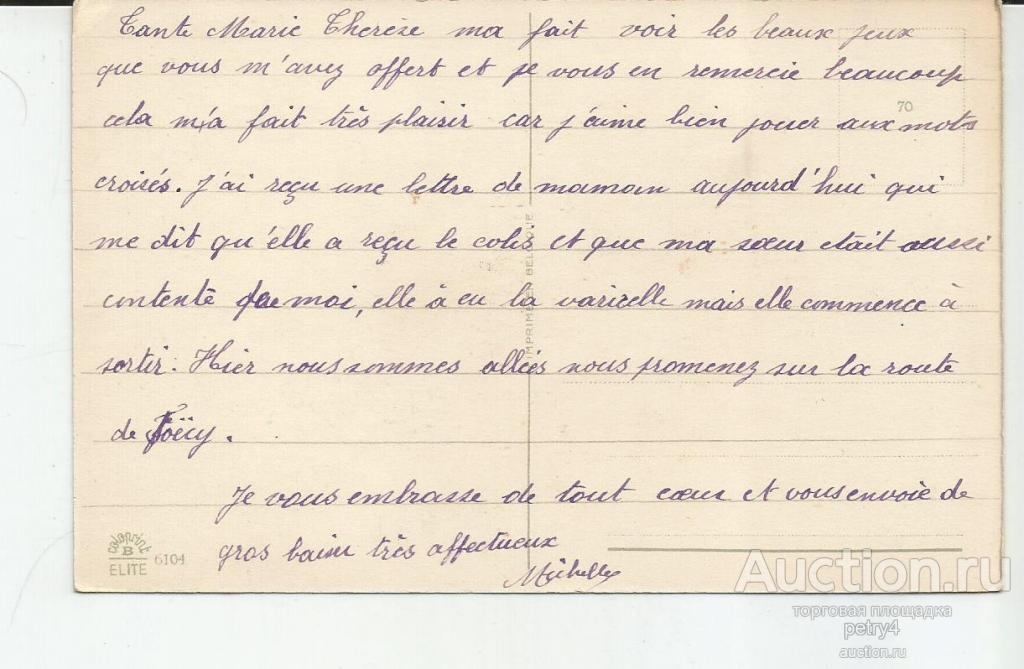 Tante Marie Therèse ma fait voir les beaux jeux
que vous m'avez offert et je vous en remercie beaucoup
70
cela m'a fait très plaisir car j'aime bien jouer aux mots
croisés. J'ai reçu une lettre de maman aujourd'hui qui
me dit qu'elle a reçu le colis et que ma sœur était aussi
contente que moi, elle à eu la varicelle mais elle commence à
sortir. Hier nous sommes allées nous promenez sur la route
de Foëcy.
Je vous embrasse de tout cœur et vous envoie de
gros baiser très affectueux
Michelle
IMPRIMÉ EN BELGIQUE
coloprint
B
ELITE
6104
Auction.ru
торговая площадка
petry4
auction.ru